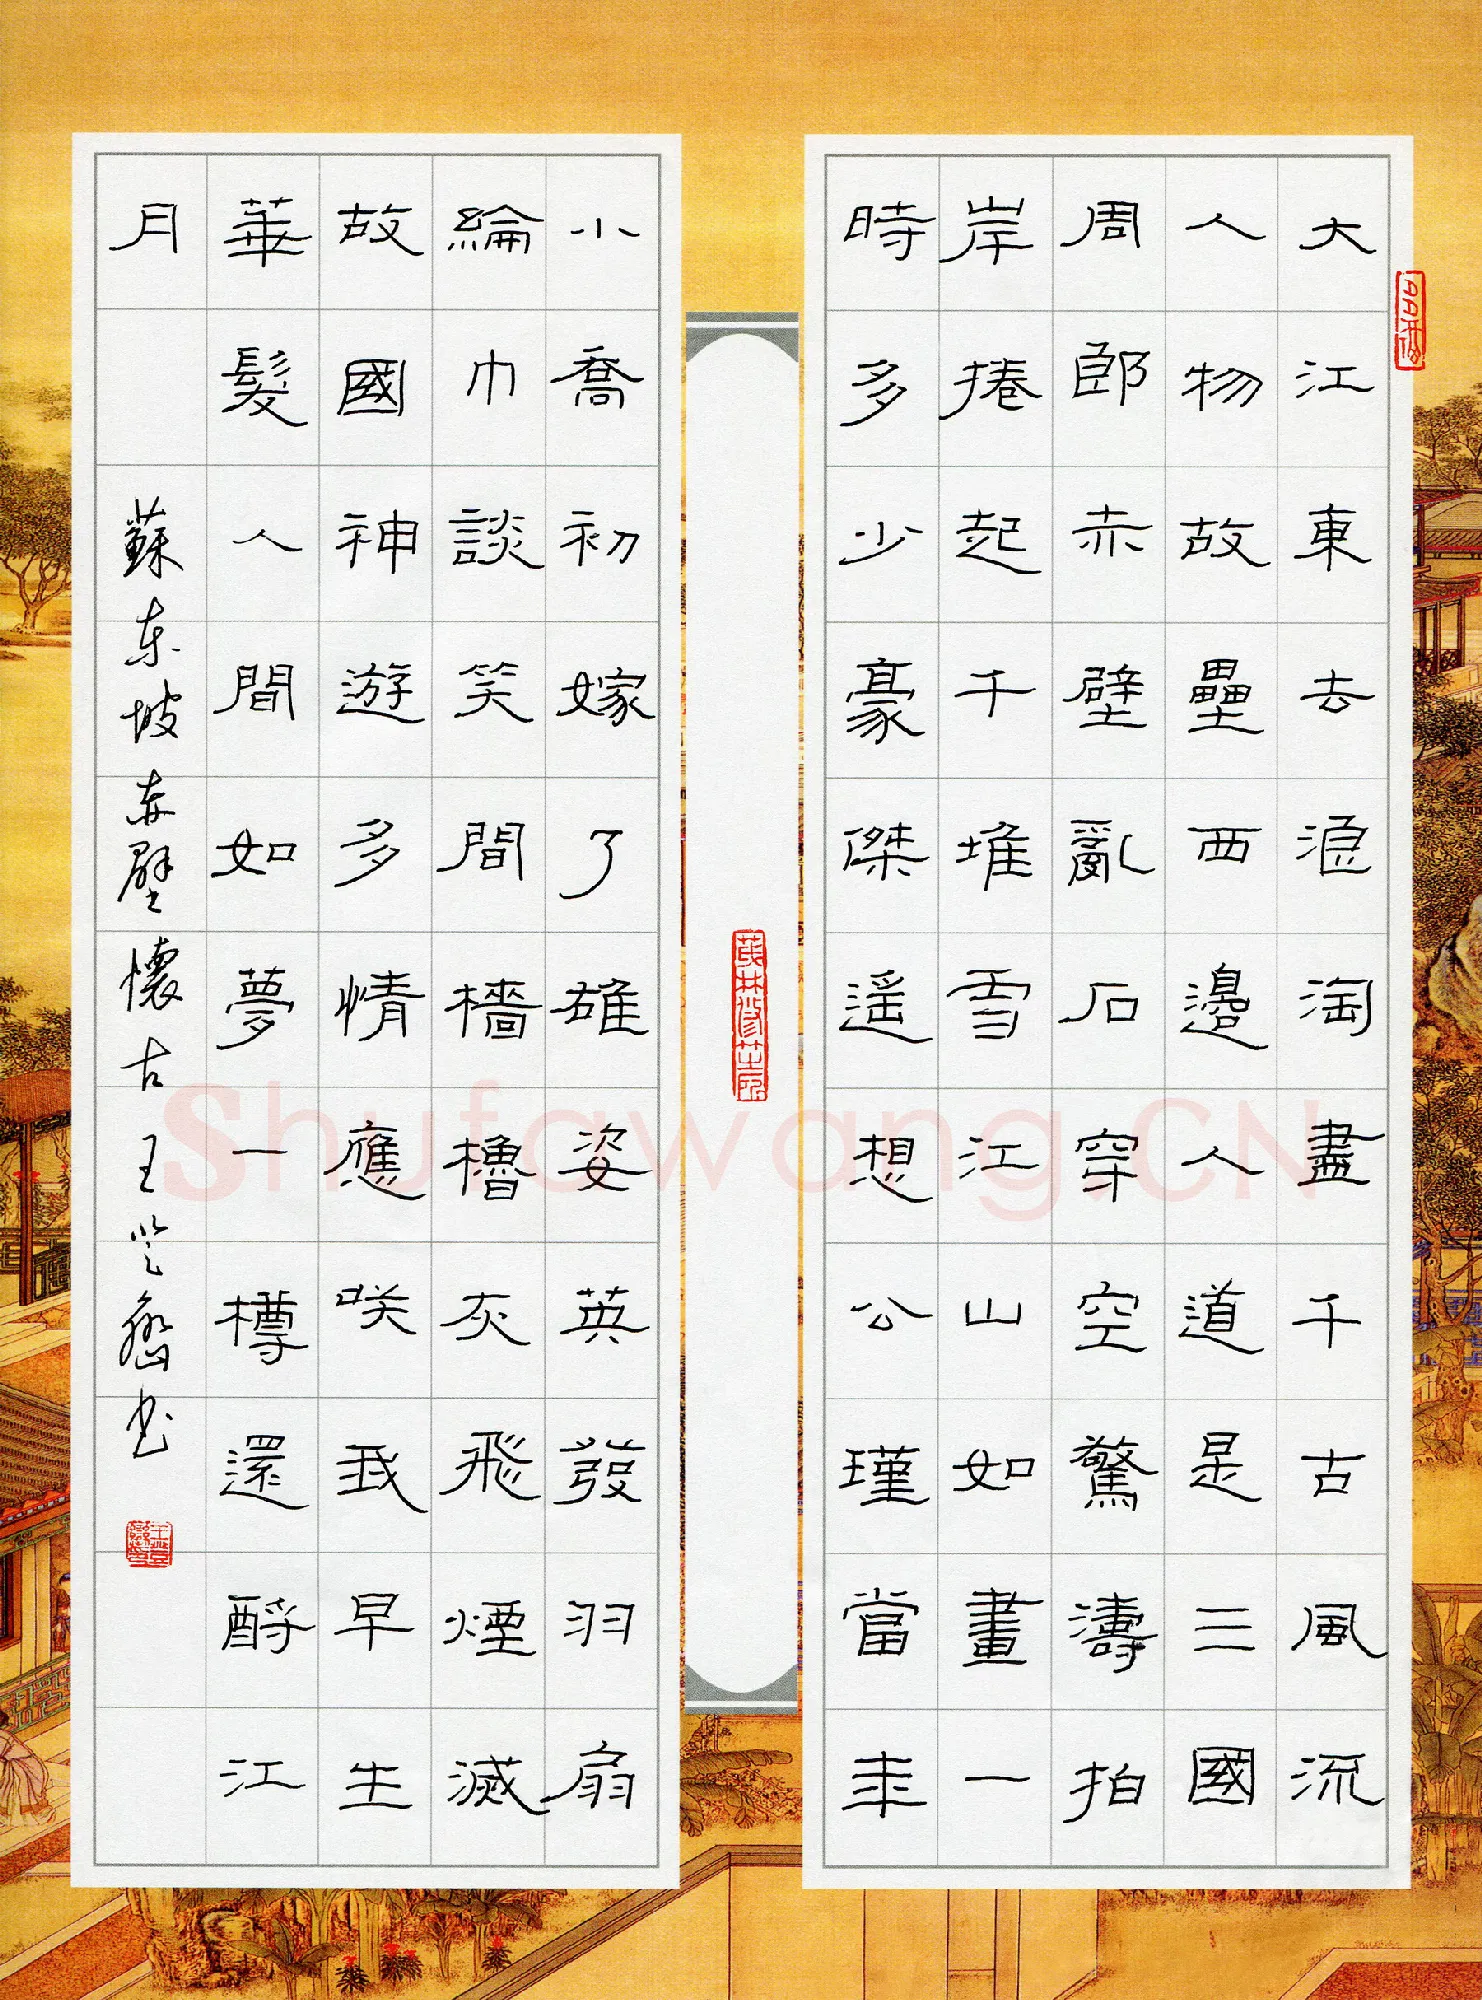 大江東去浪淘盡千古風流
人物故壘西邊人道是三國
周郎赤壁亂石穿空驚濤拍
岸捲起千堆雪江山如畫一
時多少豪傑遙想公瑾當年
小喬初嫁了雄姿英發羽扇
綸巾談笑間檣櫓灰飛煙滅
故國神遊多情應咲我早生
華髮人間如夢一樽還酹江
月
蘇东坡赤壁懷古 王 书
Shufawang.CN